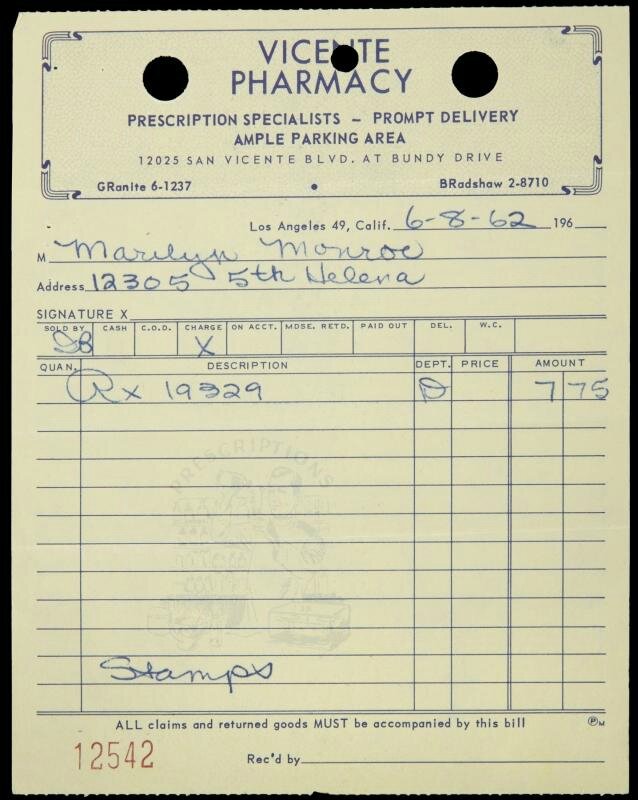 VICENTE
PHARMACY
PRESCRIPTION SPECIALISTS – PROMPT DELIVERY
AMPLE PARKING AREA
12025 SAN VICENTE BLVD. AT BUNDY DRIVE
GRanite 6-1237 • BRadshaw 2-8710
Los Angeles 49, Calif. 6-8-62 196
M Marilyn Monroe
Address 12305 5th Helena
SIGNATURE X
SOLD BY CASH C.O.D. CHARGE ON ACCT. MDSE. RETD. PAID OUT DEL. W.C.
X
QUAN. DESCRIPTION DEPT. PRICE AMOUNT
Rx 19329 D 7 75
PRESCRIPTIONS
Stamps
ALL claims and returned goods MUST be accompanied by this bill
12542 Rec'd by